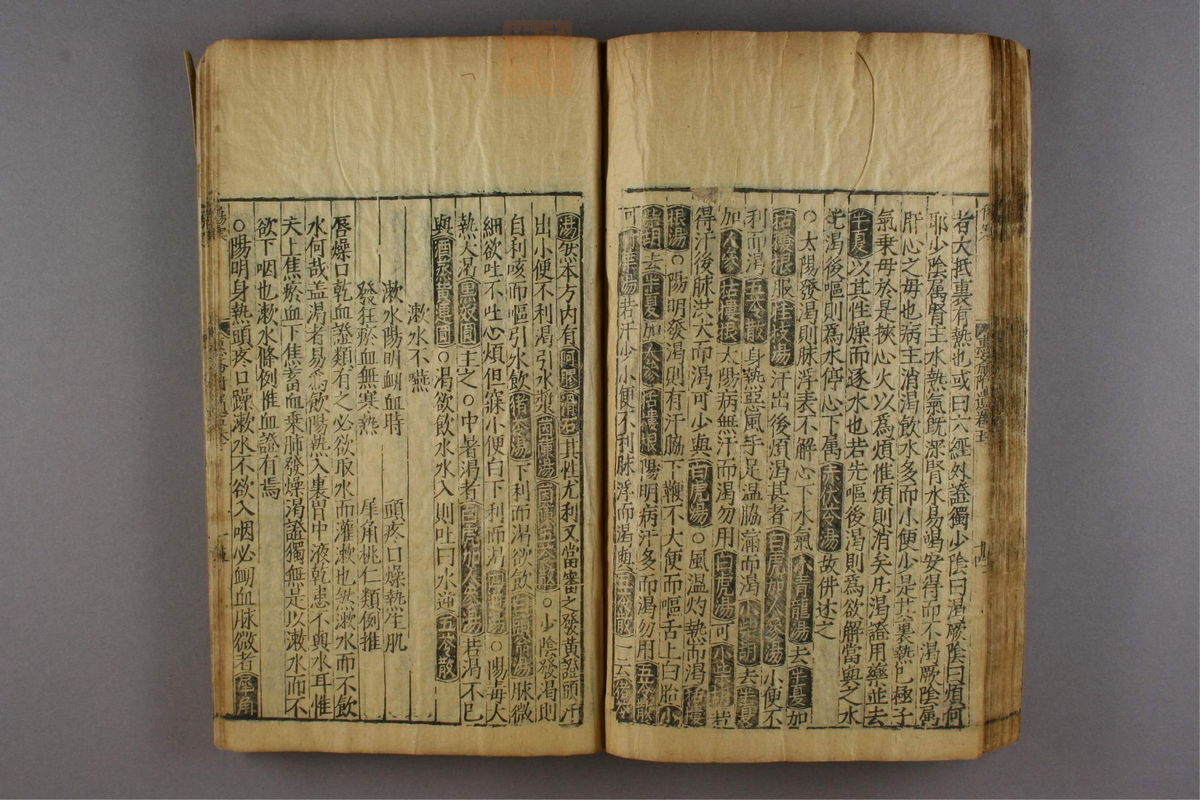 者大抵裏有熱也或曰六經外證獨少陰曰渴厥陰曰煩何
耶少陰属腎主水熱氣既深腎水易竭安得而不渴厥陰属
肝心之母也病主消渴飲水多而小便少是其裏熱已極子
氣乗母於是挾心火以為煩惟煩則消矣凡渴證用藥並去
半夏以其性燥而逐水也若先嘔後渴則為欲解當與之水
先渴後嘔則為水停心下属赤伏苓湯故併述之
○太陽發渴則脉浮表不解心下水氣小青龍湯去半夏加
栝樓根服桂枝湯汗出後煩渴甚者白虎加人參湯小便不
利而渴五苓散身熱惡風手足温脇滿而渴小柴胡去半夏
加人參栝樓根太陽病無汗而渴勿用白虎湯可小柴胡若
得汗後脉洪大而渴可少與白虎湯○風温灼熱而渴栝樓
根湯○陽明發渴則有汗脇下鞕不大便而嘔舌上白胎小
柴胡去半夏加人參栝樓根陽明病汗多而渴勿用五苓散
可竹葉湯若汗少小便不利脉浮而渴與五苓散一云猪苓
湯然本方内有阿膠滑石其性尤利又當審之發黄證頭汗
出小便不利渴引水漿茵蔯湯茵蔯五苓散○少陰發渴則
自利咳而嘔引水飲猪苓湯下利而渴欲飲白頭翁湯脉微
細欲吐不吐心煩但寐小便白下利而渴四逆湯○陽毒大
熱大渴黑奴圓主之○中暑渴者白虎加人參湯若渴不已
與酒蒸黄連圓○渴欲飲水水入則吐曰水逆五苓散
漱水不嚥
漱水陽明衂血時 頭疼口燥熱生肌
發狂瘀血無寒熱 犀角桃仁類例推
唇燥口乾血證類有之必欲取水而灌漱也然漱水而不飲
水何哉盖渴者易為飲陽熱入裏胃中液乾患不與水耳惟
夫上焦瘀血下焦蓄血乗肺發燥渴證獨無是以漱水而不
欲下咽也漱水條例惟血證有焉
○陽明身熱頭疼口躁漱水不欲入咽必衂血脉微者犀角